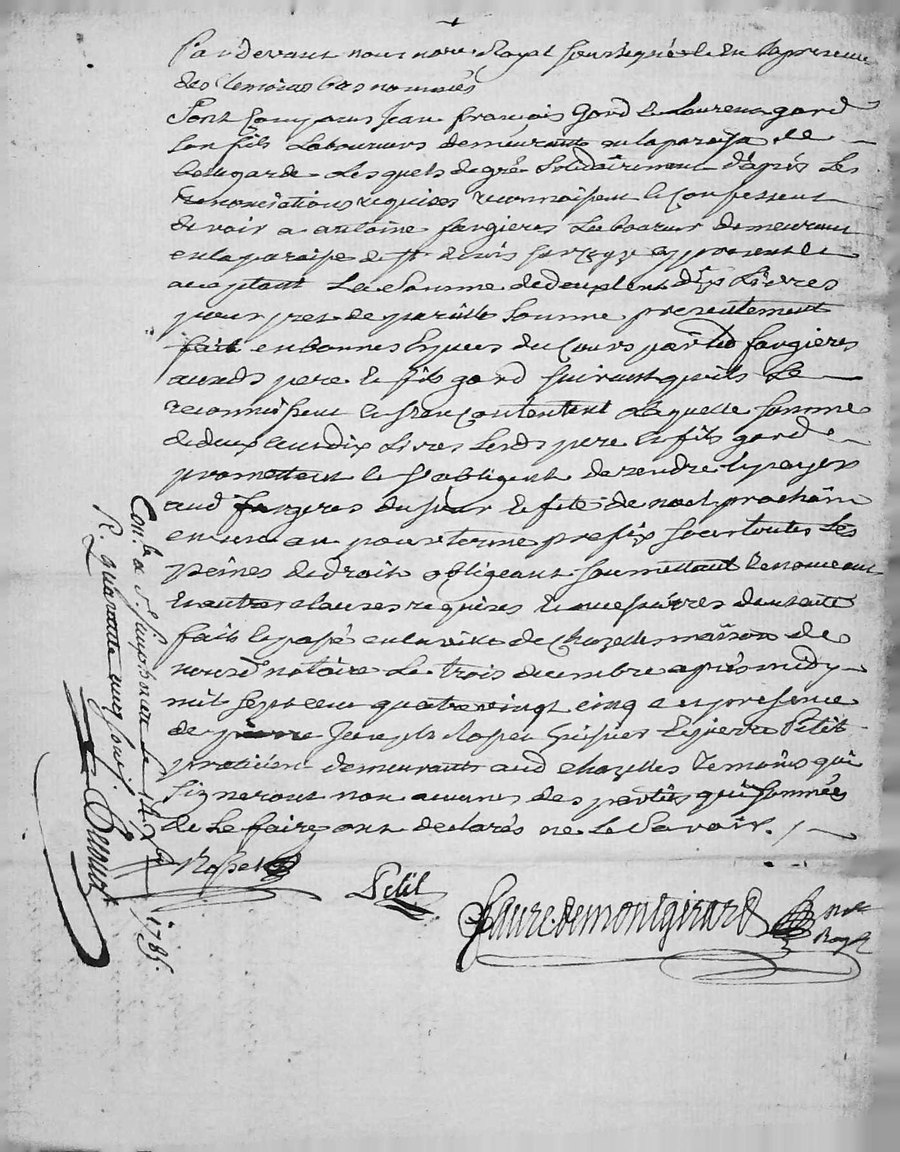 Pardevant nous no.re Royal soussigné et en la presence
des temoins bas nommés
Sont comparus Jean françois Gord et Laurens gord
son fils Laboureurs demeurants en la paroisse de
bellegarde Lesquels de gré solidairement d'après Les
renonciations requises reconnaissent et Confessent
devoir a antoine fargieres Laboureur demeurant
en la paroisse de St denis sur icy present et
acceptant La Somme de deux cent dix Livres
pour prez de pareille somme presentement
fait en bonnes Especes du Cours par led fargieres
auxds pere et fils gord suivant quils Le
reconnoissent et s'en Contentent Laquelle somme
de deux cent dix Livres Lesds pere et fils gord
promettent et s'obligent de rendre et payer
aud fargieres du jour et fête de noel prochain
en un an pour terme prefix sous toutes Les
peines de droit obligeant soumettant renonceant
Et autres clauses requises et necessaires dont acte
fait et passé en la ville de Chazelles maison de
nousd notaire Le trois decembre après midy
mil sept cent quatre vingt cinq en presence
de Joseph huissier et pierre Petit
praticien demeurants aud chazelles temoins qui
signeront non aucunes des parties qui sommées
de Le faire ont declarés ne Le Savoir. /
Petit
faure demontgirard not
Roy.l
Con.lé a St Simphorien le 14 Xbre 1785
R. quarante cinq sous